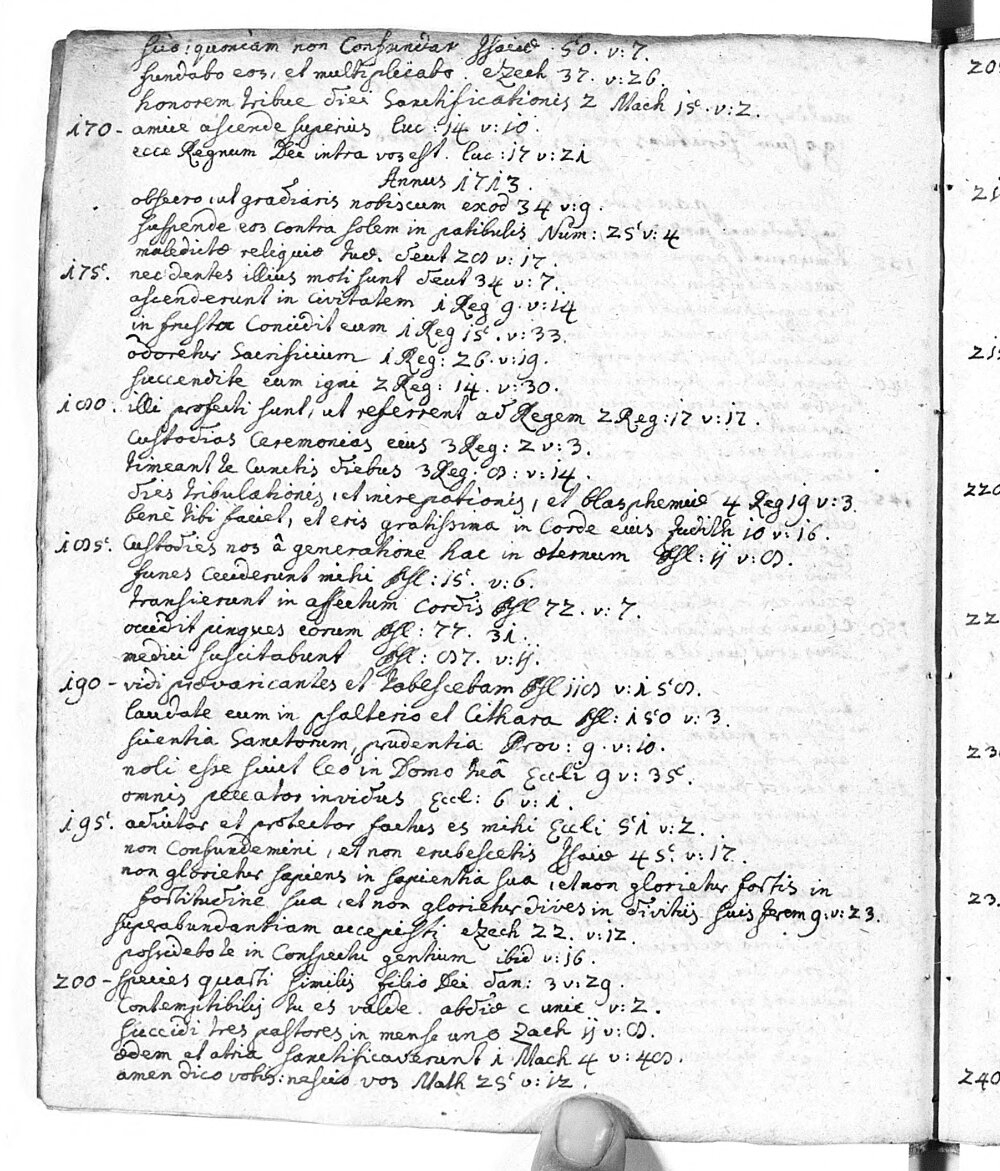 scio: quoniam non Confundar Isaiæ 50. v: 7.
fundabo eos, et multiplicabo. eZech 37. v: 26.
honorem tribue diei Sanctificationis 2 Mach 15. v: 2.
170 - amice ascende superius Luc: 14 v: 10.
ecce Regnum Dei intra vos est. Luc: 17 v: 21
Annus 1713.
obsecro, ut gradiaris nobiscum exod 34 v: 9.
suspende eos contra solem in patibulis Num: 25 v: 4
maledictæ reliquiæ tuæ. deut 28 v: 17.
175. nec dentes illius moti sunt deut 34 v: 7.
ascenderunt in Civitatem 1 Reg 9. v: 14
in frusta Concidit eum 1 Reg 15. v: 33.
odoretur Sacrificium 1 Reg: 26. v: 19.
succendite eum igni 2 Reg: 14. v: 30.
180. illi profecti sunt, ut referrent ad Regem 2 Reg: 17 v: 17.
Custodias Ceremonias eius 3 Reg: 2 v: 3.
timeant te Cunctis diebus 3 Reg: 8. v: 14.
dies tribulationis, et increpationis, et blasphemiæ 4 Reg 19 v: 3.
benè tibi faciet, et eris gratissima in Corde eius Judith 10 v: 16.
185. Custodies nos â generatione hac in æternum Psl: 11 v: 8.
funes Ceciderunt mihi Psl: 15. v: 6.
transierunt in affectum Cordis Psl 72. v: 7.
occidit pingues eorum Psl: 77. 31.
medici suscitabunt Psl: 87. v: 11.
190 - vidi prævaricantes et tabescebam Psl 118 v: 158.
laudate eum in psalterio et Cithara Psl: 150 v: 3.
scientia Sanctorum, prudentia Prov: 9. v: 10.
noli esse sicut leo in Domo tuâ Eccli 9 v: 35.
omnis peccator invidus Eccl: 6 v: 1.
195. adiutor et protector factus es mihi Eccli 51 v: 2.
non Confundemini, et non erubescetis Isaiæ 45. v: 17.
non glorietur sapiens in sapientia sua, et non glorietur fortis in
fortitudine sua, et non glorietur dives in divitiis suis Jerem 9: v: 23.
superabundantiam accepisti eZech 22. v: 12.
possidebo te in Conspectu gentium ibid v: 16.
200 - species quarti similis filio Dei dan: 3 v: 29.
Contemptibilis tu es valde. abdiæ c unic v: 2.
succidi tres pastores in mense uno Zach 11 v: 8.
ædem et atria sanctificaverunt 1 Mach 4 v: 48.
amen dico vobis: nescio vos Math 25 v: 12.
205
21
21
220
22
230
23
240